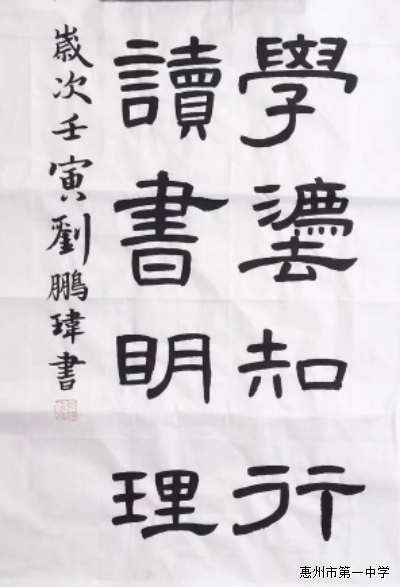 學灋知行
讀書明理
歲次壬寅劉鵬瑋書
惠州市第一中学